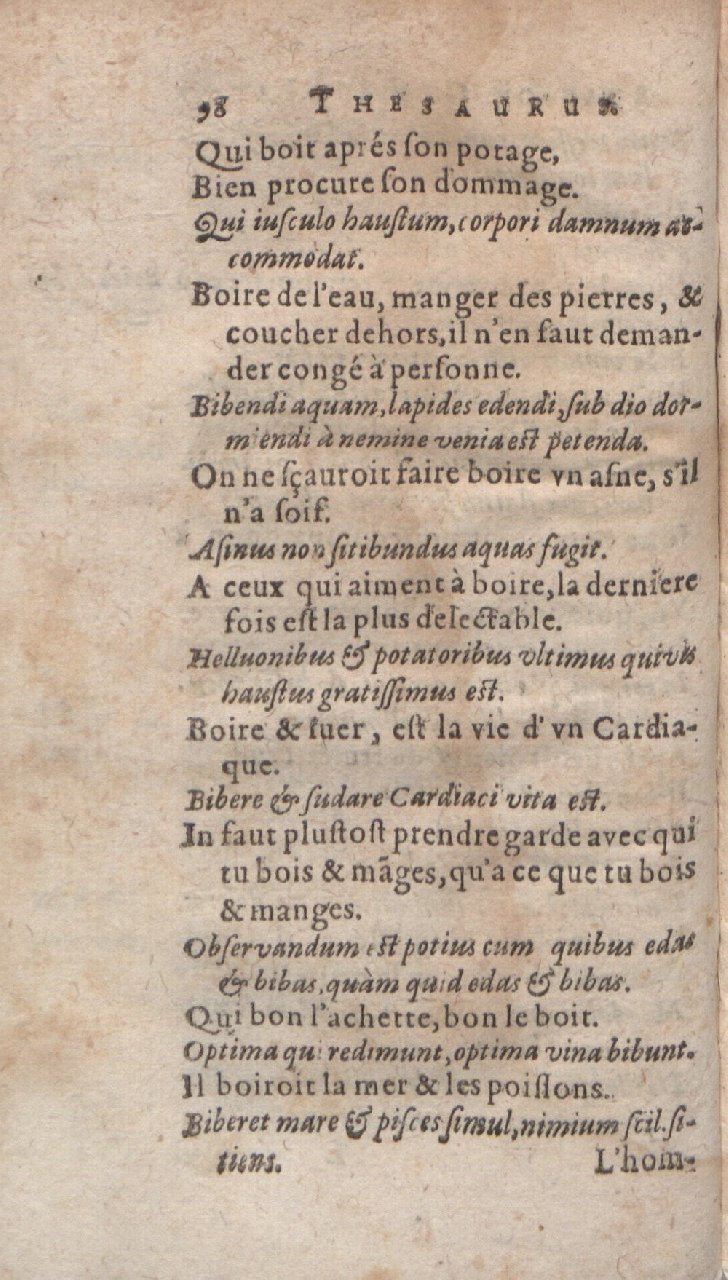 98 THESAURUS
Qui boit aprés ſon potage,
Bien procure ſon dommage.
Qui iuſculo hauſtum, corpori damnum ac-
commodat.
Boire de l'eau, manger des pierres, &
coucher dehors, il n'en faut deman-
der congé à perſonne.
Bibendi aquam, lapides edendi, ſub dio dor-
miendi à nemine venia eſt petenda.
On ne ſçauroit faire boire vn aſne, s'il
n'a ſoif.
Aſinus non ſitibundus aquas fugit.
A ceux qui aiment à boire, la derniere
fois eſt la plus delectable.
Helluonibus & potatoribus vltimus quivis
hauſtus gratiſſimus est.
Boire & ſuer, eſt la vie d'vn Cardia-
que.
Bibere & ſudare Cardiaci vita eſt.
In faut pluſtoſt prendre garde avec qui
tu bois & mãges, qu'a ce que tu bois
& manges.
Obſervandum eſt potius cum quibus edas
& bibas, quàm quid edas & bibas.
Qui bon l'achette, bon le boit.
Optima qui redimunt, optima vina bibunt.
Il boiroit la mer & les poiſſons.
Biberet mare & piſces ſimul, nimium ſcil. ſi-
tiens. L'hom-